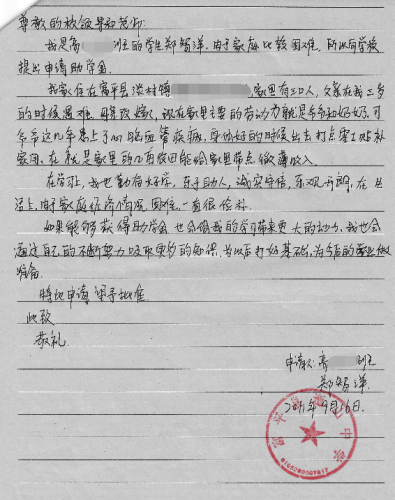 尊敬的校领导和老师:
我是高 班的学生郑智洋,由于家庭比较困难,所以向学校
提出申请助学金。
我家住在富平县淡村镇 ,家里有三口人,父亲在我三岁
的时候遇难,母亲改嫁,现在家里主要的劳动力就是爷爷和奶奶,可
爷爷这几年患上了心脑血管疾病,身体好的时候出去打点零工贴补
家用,在就是家里的几亩农田能给家里带点微薄收入。
在学习上,我也勤奋好学,乐于助人,诚实守信,乐观开朗,在生
活上,由于家庭经济情况困难,一直很俭朴。
如果能够获得助学金 也会给我的学习带来更大的动力,我也会
通过自己的不断努力吸取更多的知识,为以后打好基础,为今后的就业做
准备。
特此申请 望予批准
此致
敬礼
申请人:高 班
郑智洋
9月16日